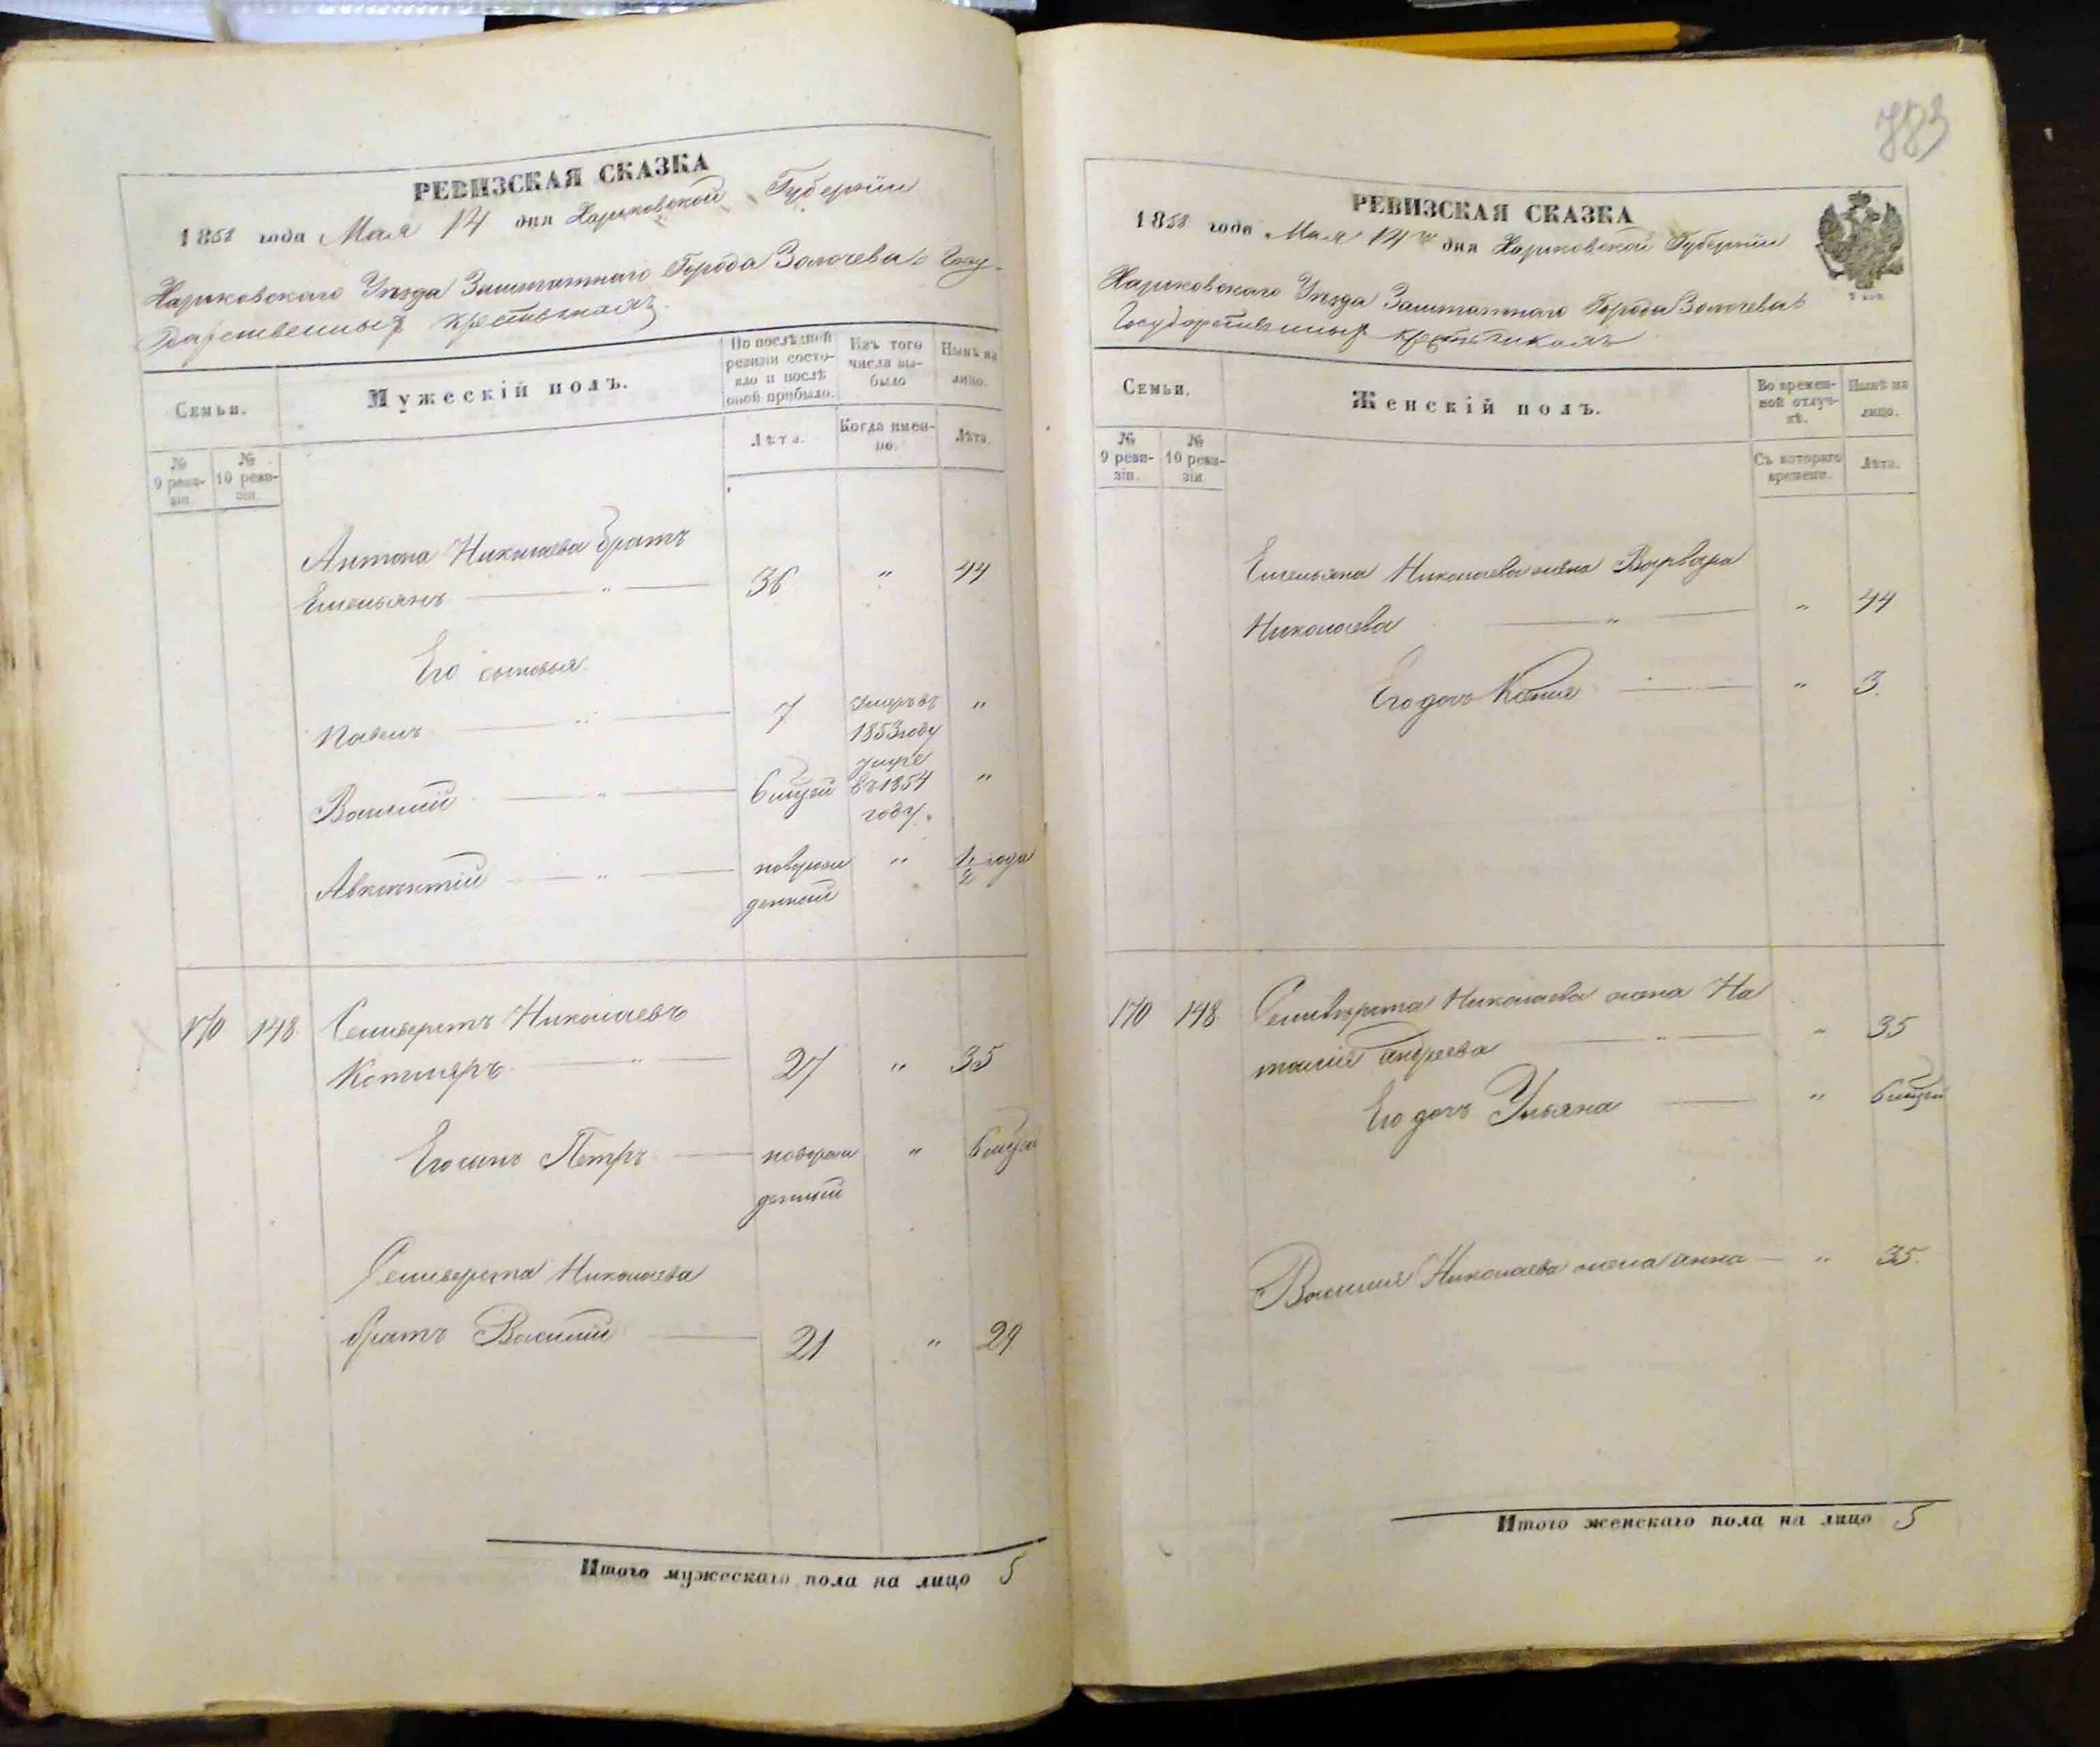 РЕВИЗСКАЯ СКАЗКА
1858 года Мая 14 дня Харьковской Губернiи
Харьковскаго Уѣзда Заштатнаго Города Золочева о Госу-
дарственныхъ крестьянахъ
Семьи.
Мужескiй полъ.
По послѣдней ревизiи состояло и послѣ оной прибыло.
Изъ того числа выбыло
Нынѣ на лицо.
№ 9 ревизiи.
№ 10 ревизiи.
Лѣта.
Когда именно.
Лѣта.
Антона Николаева братъ
Емельянъ — " — 36 " 44
Его сыновья
Павелъ — " — 7 Умеръ въ 1853 году "
Василiй — " — 6 мцей умре въ 1854 году. "
Авксентiй — " — новорожденный " 1/2 года
170 148 Селиверстъ Николаевъ
Котляръ — " — 27 " 35
Его сынъ Петръ — новорожденный " 6 мцей
Селиверста Николаева
братъ Василiй — 21 " 29
Итого мужескаго пола на лицо 5
783
РЕВИЗСКАЯ СКАЗКА
1858 года Мая 14го дня Харьковской Губернiи
Харьковскаго Уѣзда Заштатнаго Города Золочева о
Государственныхъ крестьянахъ
Семьи.
Женскiй полъ.
Во временной отлучкѣ.
Нынѣ на лицо.
№ 9 ревизiи.
№ 10 ревизiи.
Съ котораго времени.
Лѣта.
Емельяна Николаева жена Варвара
Николаева — " — " 44
Его дочь Ксенiя — " 3.
170 148 Селиверста Николаева жена На
талiя Андреева — " — " 35
Его дочь Ульяна — " 6 мцей
Василия Николаева жена Анна — " 35.
Итого женскаго пола на лицо 5